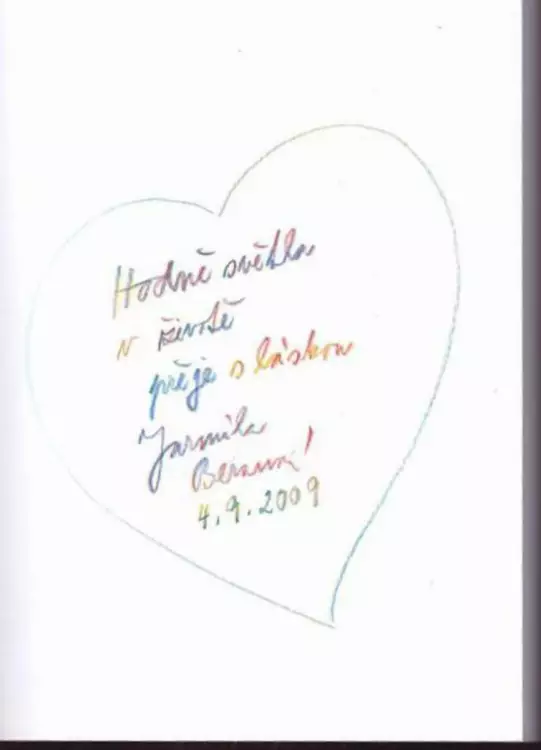 Hodně světla
v životě
přeje s láskou
Jarmila
4.9.2009